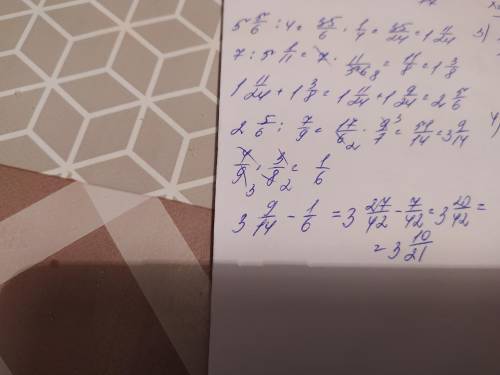 5 5/6 : 4 = 35/6 · 1/4 = 35/24 = 1 11/24
3)
7 : 5 1/11 = 7 · 11/56 8 = 11/8 = 1 3/8
1 11/24 + 1 3/8 = 1 11/24 + 1 9/24 = 2 5/6
4)
2 5/6 : 7/9 = 17/6 2 · 9 3/7 = 51/14 = 3 9/14
4/9 3 · 3/8 2 = 1/6
3 9/14 - 1/6 = 3 27/42 - 7/42 = 3 20/42 =
= 3 10/21